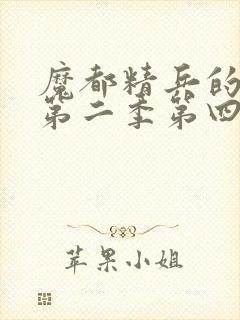 魔都精兵的
第二季第四
苹果小姐